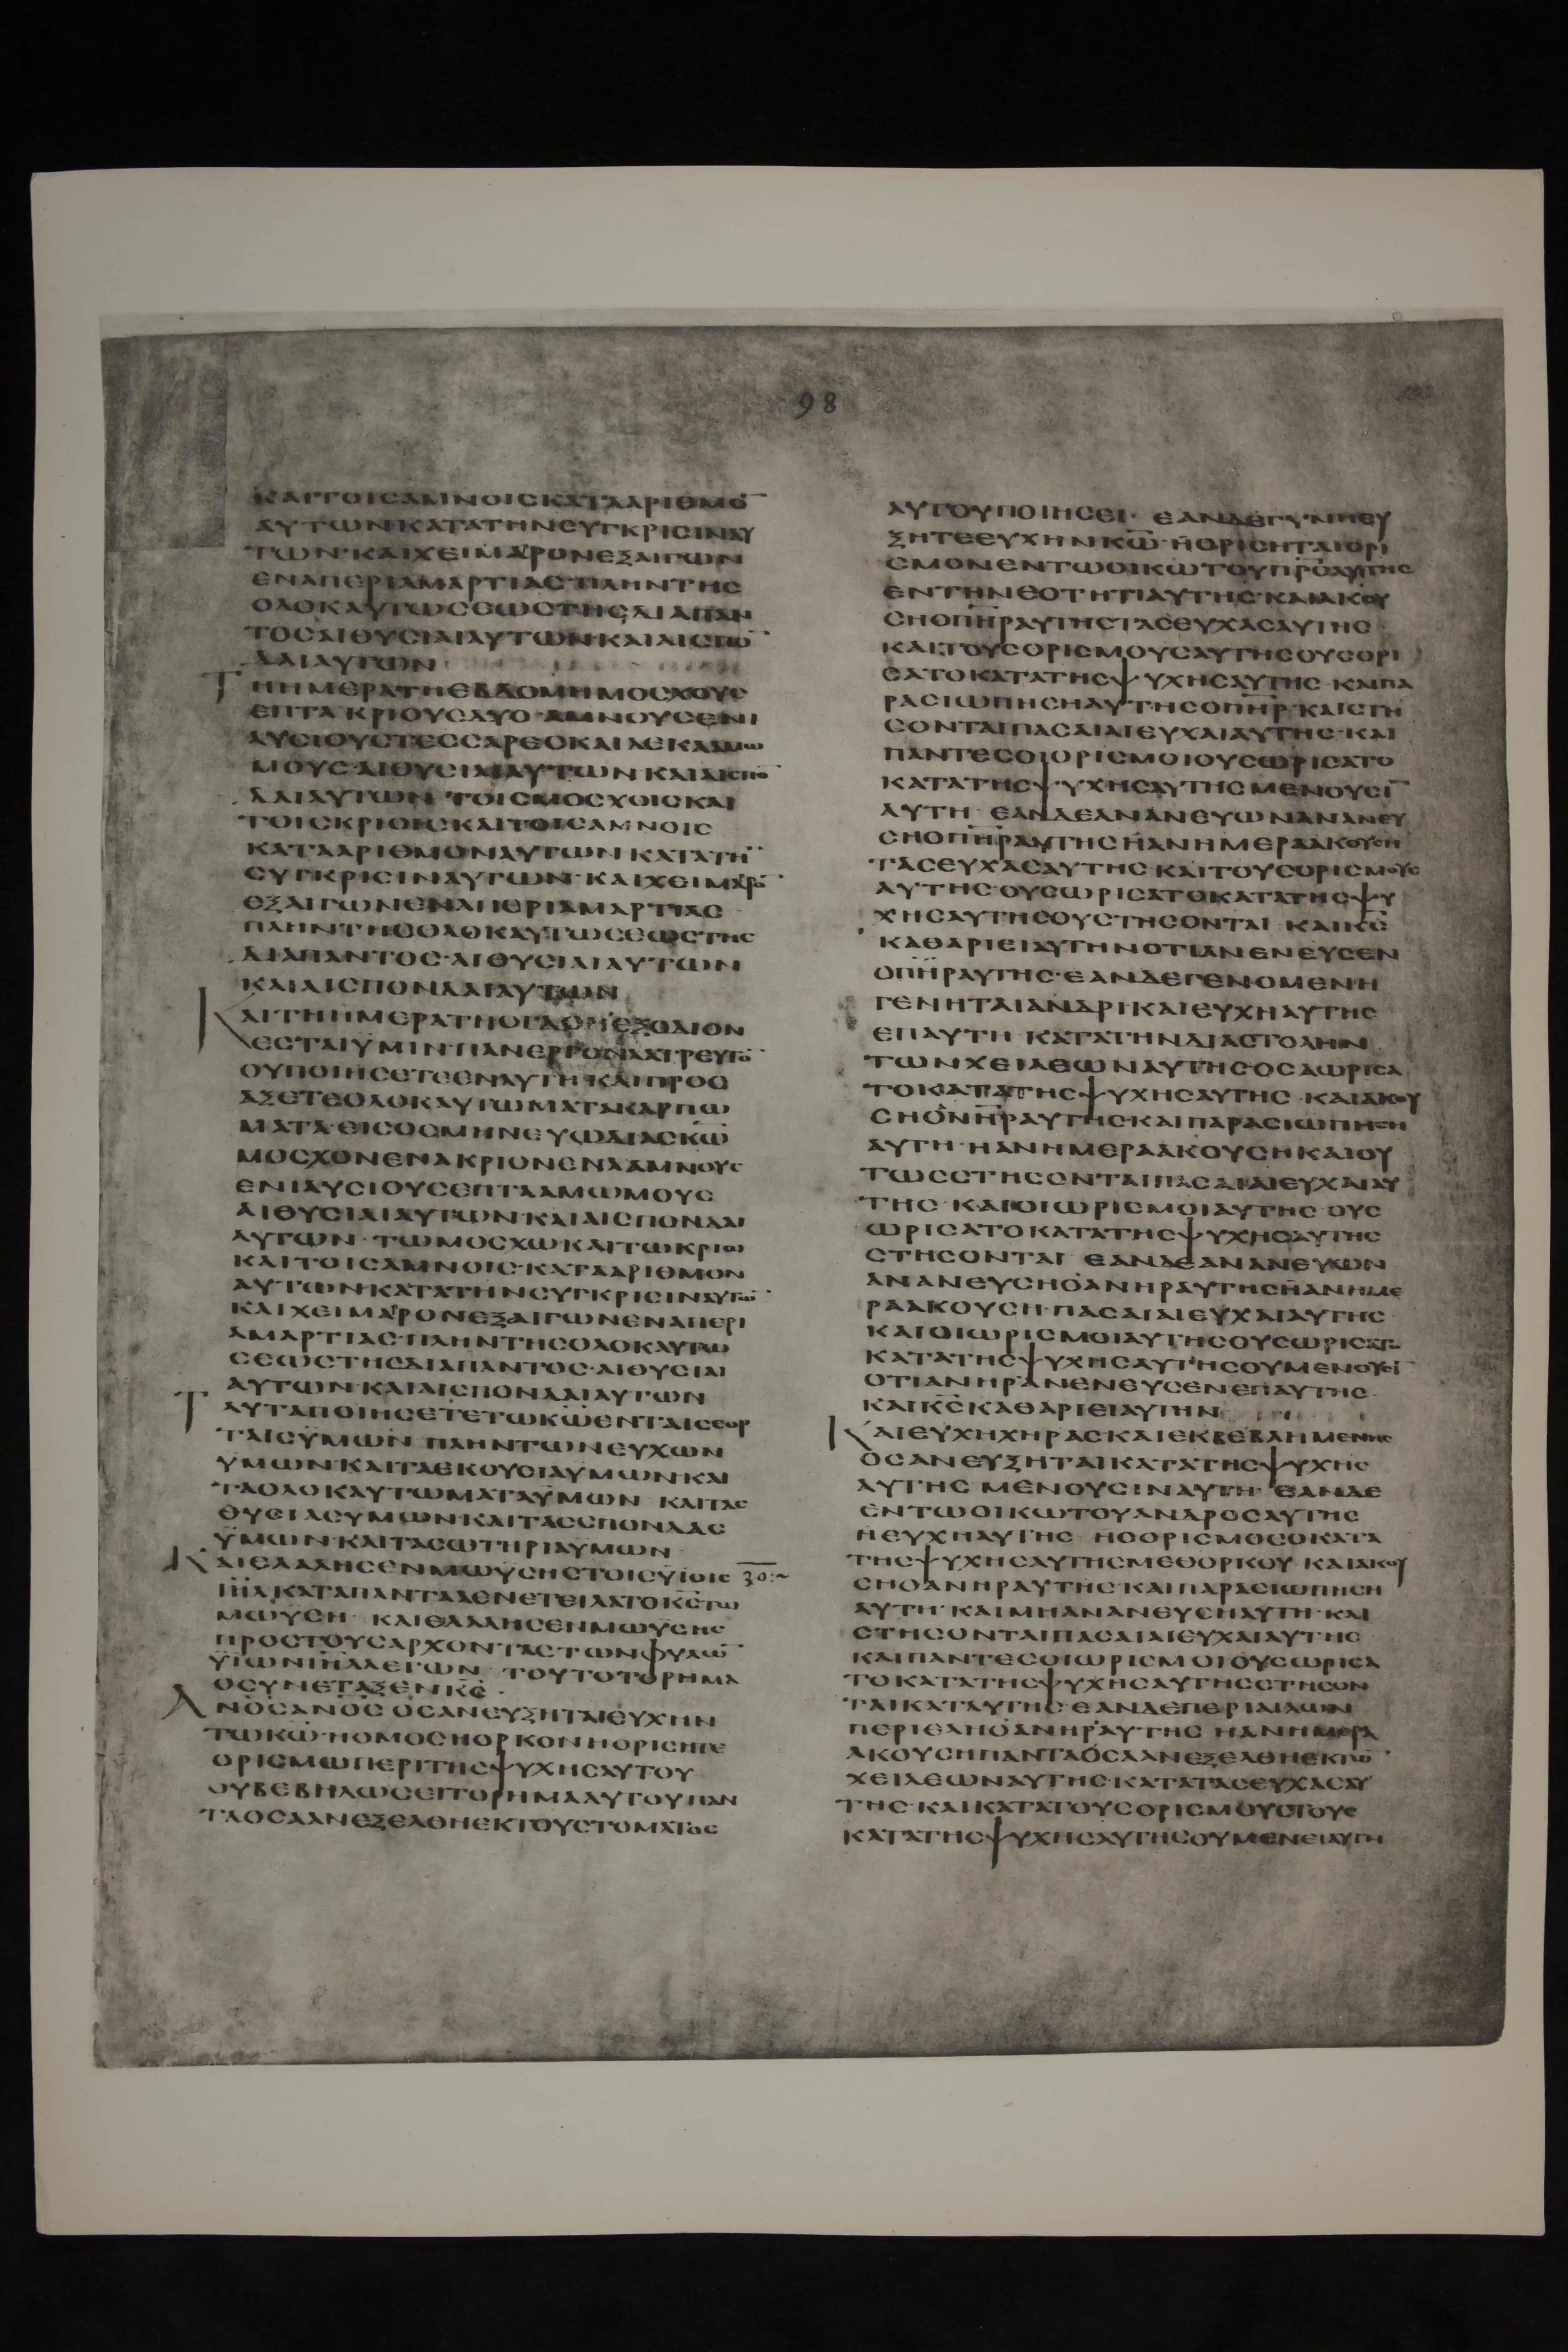 98
ΚΑΙΤΟΙCΑΜΝΟΙCΚΑΤΑΑΡΙΘΜΟ̅
ΑΥΤΩΝΚΑΤΑΤΗΝCΥΓΚΡΙCΙΝΑΥ
ΤΩΝ·ΚΑΙΧΕΙΜΑΡΟΝΕΞΑΙΓΩΝ
ΕΝΑΠΕΡΙΑΜΑΡΤΙΑCΠΛΗΝΤΗC
ΟΛΟΚΑΥΤΩCΕΩCΤΗCΔΙΑΠΑΝ
ΤΟCΑΙΘΥCΙΑΙΑΥΤΩΝΚΑΙΑΙCΠΟ̅
ΔΑΙΑΥΤΩΝ
ΤΗΗΜΕΡΑΤΗΕΒΔΟΜΗΜΟCΧΟΥC
ΕΠΤΑΚΡΙΟΥCΔΥΟ·ΑΜΝΟΥCΕΝΙ
ΑΥCΙΟΥCΤΕCCΑΡΕCΚΑΙΔΕΚΑΑΜΩ
ΜΟΥC·ΑΙΘΥCΙΑΙΑΥΤΩΝΚΑΙΑΙCΠΟ̅
ΔΑΙΑΥΤΩΝ ΤΟΙCΜΟCΧΟΙCΚΑΙ
ΤΟΙCΚΡΙΟΙCΚΑΙΤΟΙCΑΜΝΟΙC
ΚΑΤΑΑΡΙΘΜΟΝΑΥΤΩΝΚΑΤΑΤΗ̅
CΥΓΚΡΙCΙΝΑΥΤΩΝ·ΚΑΙΧΕΙΜΑΡΟ̅
ΕΞΑΙΓΩΝΕΝΑΠΕΡΙΑΜΑΡΤΙΑC
ΠΛΗΝΤΗCΟΛΟΚΑΥΤΩCΕΩCΤΗC
ΔΙΑΠΑΝΤΟC·ΑΙΘΥCΙΑΙΑΥΤΩΝ
ΚΑΙΑΙCΠΟΝΔΑΙΑΥΤΩΝ
ΚΑΙΤΗΗΜΕΡΑΤΗΟΓΔΟΗΕΞΟΔΙΟΝ
ΕCΤΑΙΥΜΙΝ·ΠΑΝΕΡΓΟΝΛΑΤΡΕΥΤΟ̅
ΟΥΠΟΙΗCΕΤΕΕΝΑΥΤΗΚΑΙΠΡΟC
ΑΞΕΤΕΟΛΟΚΑΥΤΩΜΑΤΑΚΑΡΠΩ
ΜΑΤΑ·ΕΙCΟCΜΗΝΕΥΩΔΙΑCΚ̅Ω̅
ΜΟCΧΟΝΕΝΑΚΡΙΟΝΕΝΑΑΜΝΟΥC
ΕΝΙΑΥCΙΟΥCΕΠΤΑΑΜΩΜΟΥC
ΑΙΘΥCΙΑΙΑΥΤΩΝ·ΚΑΙΑΙCΠΟΝΔΑΙ
ΑΥΤΩΝ ΤΩΜΟCΧΩΚΑΙΤΩΚΡΙΩ
ΚΑΙΤΟΙCΑΜΝΟΙC·ΚΑΤΑΑΡΙΘΜΟΝ
ΑΥΤΩΝΚΑΤΑΤΗΝCΥΓΚΡΙCΙΝΑΥΤΩ̅
ΚΑΙΧΕΙΜΑΡΟΝΕΞΑΙΓΩΝΕΝΑΠΕΡΙ
ΑΜΑΡΤΙΑC·ΠΛΗΝΤΗCΟΛΟΚΑΥΤΩ
CΕΩCΤΗCΔΙΑΠΑΝΤΟC·ΑΙΘΥCΙΑΙ
ΑΥΤΩΝ·ΚΑΙΑΙCΠΟΝΔΑΙΑΥΤΩΝ
ΤΑΥΤΑΠΟΙΗCΕΤΕΤΩΚ̅Ω̅ΕΝΤΑΙCΕΟΡ
ΤΑΙCΥΜΩΝ ΠΛΗΝΤΩΝΕΥΧΩΝ
ΥΜΩΝ·ΚΑΙΤΑΕΚΟΥCΙΑΥΜΩΝΚΑΙ
ΤΑΟΛΟΚΑΥΤΩΜΑΤΑΥΜΩΝ ΚΑΙΤΑC
ΘΥCΙΑCΥΜΩΝ·ΚΑΙΤΑCCΠΟΝΔΑC
ΥΜΩΝ·ΚΑΙΤΑCΩΤΗΡΙΑΥΜΩΝ
ΚΑΙΕΛΑΛΗCΕΝΜΩΥCΗCΤΟΙCΥΙΟΙC 30:~
Ι̅Η̅Λ̅ΚΑΤΑΠΑΝΤΑΑΕΝΕΤΕΙΛΑΤΟΚ̅C̅ΤΩ
ΜΩΥCΗ· ΚΑΙΕΛΑΛΗCΕΝΜΩΥCΗC
ΠΡΟCΤΟΥCΑΡΧΟΝΤΑCΤΩΝΦΥΛΩ̅
ΥΙΩΝΙ̅Η̅Λ̅ΛΕΓΩΝ ΤΟΥΤΟΤΟΡΗΜΑ
ΟCΥΝΕΤΑΞΕΝΚ̅C̅·
ΑΝ̅Ο̅C̅ΑΝ̅Ο̅C̅ΟCΑΝΕΥΞΗΤΑΙΕΥΧΗΝ
ΤΩΚ̅Ω̅·ΗΟΜΟCΗΟΡΚΟΝΗΟΡΙCΗΤΕ
ΟΡΙCΜΩΠΕΡΙΤΗCΨΥΧΗCΑΥΤΟΥ
ΟΥΒΕΒΗΛΩCΕΙΤΟΡΗΜΑΑΥΤΟΥΠΑΝ
ΤΑΟCΑΑΝΕΞΕΛΘΗΕΚΤΟΥCΤΟΜΑΤΟC
ΑΥΤΟΥΠΟΙΗCΕΙ· ΕΑΝΔΕΓΥΝΗΕΥ
ΞΗΤΕΕΥΧΗΝΚ̅Ω̅·ΗΟΡΙCΗΤΑΙΟΡΙ
CΜΟΝΕΝΤΩΟΙΚΩΤΟΥΠΡ̅C̅ΑΥΤΗC
ΕΝΤΗΝΕΟΤΗΤΙΑΥΤΗC·ΚΑΙΑΚΟΥ
CΗΟΠ̅Η̅Ρ̅ΑΥΤΗCΤΑCΕΥΧΑCΑΥΤΗC
ΚΑΙΤΟΥCΟΡΙCΜΟΥCΑΥΤΗCΟΥCΟΡΙ
CΑΤΟΚΑΤΑΤΗCΨΥΧΗCΑΥΤΗC·ΚΑΙΠΑ
ΡΑCΙΩΠΗCΗΑΥΤΗCΟΠ̅Η̅Ρ̅·ΚΑΙCΤΗ
CΟΝΤΑΙΠΑCΑΙΑΙΕΥΧΑΙΑΥΤΗC·ΚΑΙ
ΠΑΝΤΕCΟΙΟΡΙCΜΟΙΟΥCΩΡΙCΑΤΟ
ΚΑΤΑΤΗCΨΥΧΗCΑΥΤΗCΜΕΝΟΥCΙ̅
ΑΥΤΗ· ΕΑΝΔΕΑΝΑΝΕΥΩΝΑΝΑΝΕΥ
CΗΟΠ̅Η̅Ρ̅ΑΥΤΗCΗΑΝΗΜΕΡΑΑΚΟΥCΗ
ΤΑCΕΥΧΑCΑΥΤΗC ΚΑΙΤΟΥCΟΡΙCΜΟΥC
ΑΥΤΗC·ΟΥCΩΡΙCΑΤΟΚΑΤΑΤΗCΨΥ
ΧΗCΑΥΤΗCΟΥCΤΗCΟΝΤΑΙ ΚΑΙΚ̅C̅
ΚΑΘΑΡΙΕΙΑΥΤΗΝΟΤΙΑΝΕΝΕΥCΕΝ
ΟΠ̅Η̅Ρ̅ΑΥΤΗC·ΕΑΝΔΕΓΕΝΟΜΕΝΗ
ΓΕΝΗΤΑΙΑΝΔΡΙΚΑΙΕΥΧΗΑΥΤΗC
ΕΠΑΥΤΗ ΚΑΤΑΤΗΝΔΙΑCΤΟΛΗΝ
ΤΩΝΧΕΙΛΕΩΝΑΥΤΗC·ΟCΑΩΡΙCΑ
ΤΟΚΑΤΑΤΗCΨΥΧΗCΑΥΤΗC·ΚΑΙΑΚΟΥ
CΗΟΑΝΗΡΑΥΤΗCΚΑΙΠΑΡΑCΙΩΠΗCΗ
ΑΥΤΗ·ΗΑΝΗΜΕΡΑΑΚΟΥCΗΚΑΙΟΥ
ΤΩCCΤΗCΟΝΤΑΙΠΑCΑΙΑΙΕΥΧΑΙΑΥ
ΤΗC ΚΑΙΟΙΩΡΙCΜΟΙΑΥΤΗC ΟΥC
ΩΡΙCΑΤΟΚΑΤΑΤΗCΨΥΧΗCΑΥΤΗC
CΤΗCΟΝΤΑΙ ΕΑΝΔΕΑΝΑΝΕΥΩΝ
ΑΝΑΝΕΥCΗΟΑΝΗΡΑΥΤΗCΗΑΝΗΜΕ
ΡΑΑΚΟΥCΗ·ΠΑCΑΙΑΙΕΥΧΑΙΑΥΤΗC
ΚΑΙΟΙΩΡΙCΜΟΙΑΥΤΗCΟΥCΩΡΙCΑΤΟ
ΚΑΤΑΤΗCΨΥΧΗCΑΥΤΗCΟΥΜΕΝΟΥCΙ̅
ΟΤΙΑΝΗΡΑΝΕΝΕΥCΕΝΕΠΑΥΤΗC·
ΚΑΙΚ̅C̅ΚΑΘΑΡΙΕΙΑΥΤΗΝ
ΚΑΙΕΥΧΗΧΗΡΑCΚΑΙΕΚΒΕΒΛΗΜΕΝΗC
ΟCΑΝΕΥΞΗΤΑΙΚΑΤΑΤΗCΨΥΧΗC
ΑΥΤΗC ΜΕΝΟΥCΙΝΑΥΤΗ· ΕΑΝΔΕ
ΕΝΤΩΟΙΚΩΤΟΥΑΝΔΡΟCΑΥΤΗC
ΗΕΥΧΗΑΥΤΗC ΗΟΟΡΙCΜΟCΟΚΑΤΑ
ΤΗCΨΥΧΗCΑΥΤΗCΜΕΘΟΡΚΟΥ·ΚΑΙΑΚΟΥ
CΗΟΑΝΗΡΑΥΤΗC·ΚΑΙΠΑΡΑCΙΩΠΗCΗ
ΑΥΤΗ·ΚΑΙΜΗΑΝΑΝΕΥCΗΑΥΤΗ·ΚΑΙ
CΤΗCΟΝΤΑΙΠΑCΑΙΑΙΕΥΧΑΙΑΥΤΗC
ΚΑΙΠΑΝΤΕCΟΙΩΡΙCΜΟΙΟΥCΩΡΙCΑ
ΤΟΚΑΤΑΤΗCΨΥΧΗCΑΥΤΗCCΤΗCΟΝ
ΤΑΙΚΑΤΑΥΤΗC·ΕΑΝΔΕΠΕΡΙΑΙΛΩΝ
ΠΕΡΙΕΛΗΟΑΝΗΡΑΥΤΗC ΗΑΝΗΜΕΡΑ
ΑΚΟΥCΗΠΑΝΤΑΟCΑΑΝΕΞΕΛΘΗΕΚΤΩ̅
ΧΕΙΛΕΩΝΑΥΤΗC·ΚΑΤΑΤΑCΕΥΧΑCΑΥ
ΤΗC·ΚΑΙΚΑΤΑΤΟΥCΟΡΙCΜΟΥCΤΟΥC
ΚΑΤΑΤΗCΨΥΧΗCΑΥΤΗCΟΥΜΕΝΕΙΑΥΤΗ